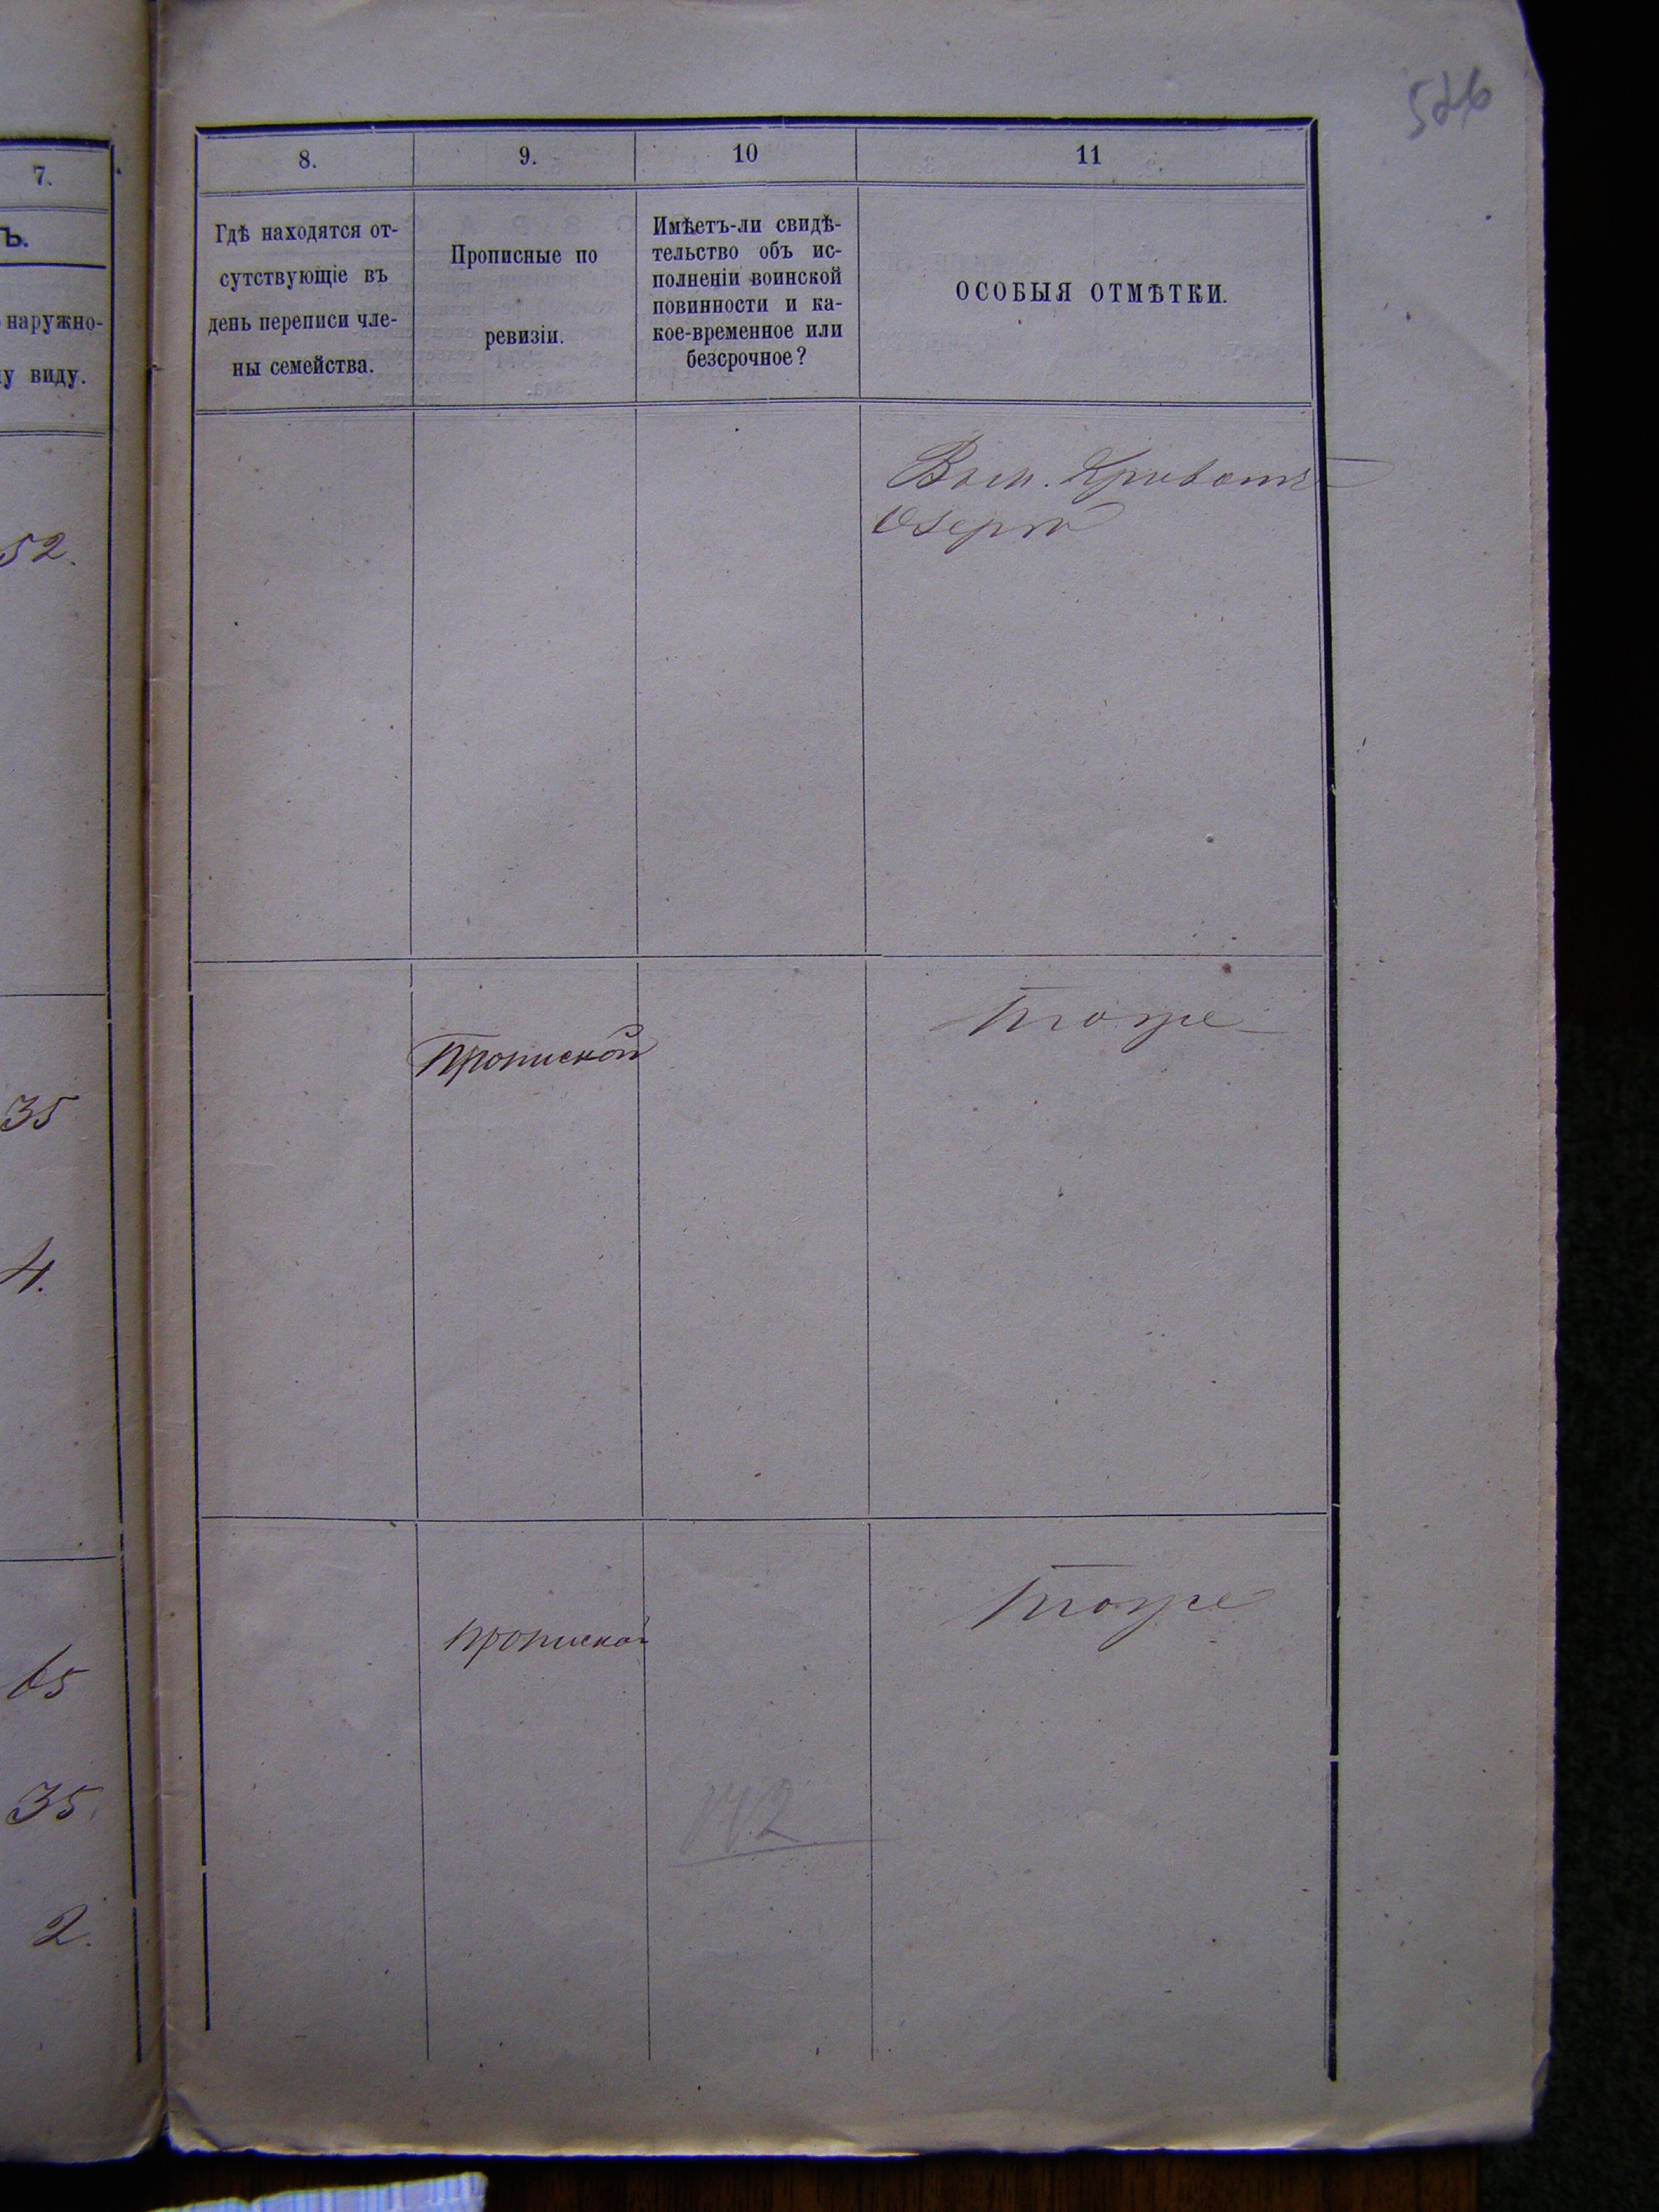 526
7.
Ъ.
наружно-
виду.
52.
35
4.
65
35.
2.
8.
9.
10
11
Гдѣ находятся от-
сутствующіе въ
день переписи чле-
ны семейства.
Прописные по
ревизіи.
Имѣетъ-ли свидѣ-
тельство объ ис-
полненіи воинской
повинности и ка-
кое-временное или
безсрочное?
ОСОБЫЯ ОТМѢТКИ.
Озеро
Прописной
тоже
прописной
тоже
142